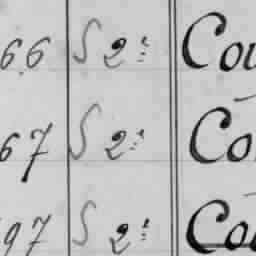 66 S 2: Cou
67 S 2: Co
97 S 2: Cou